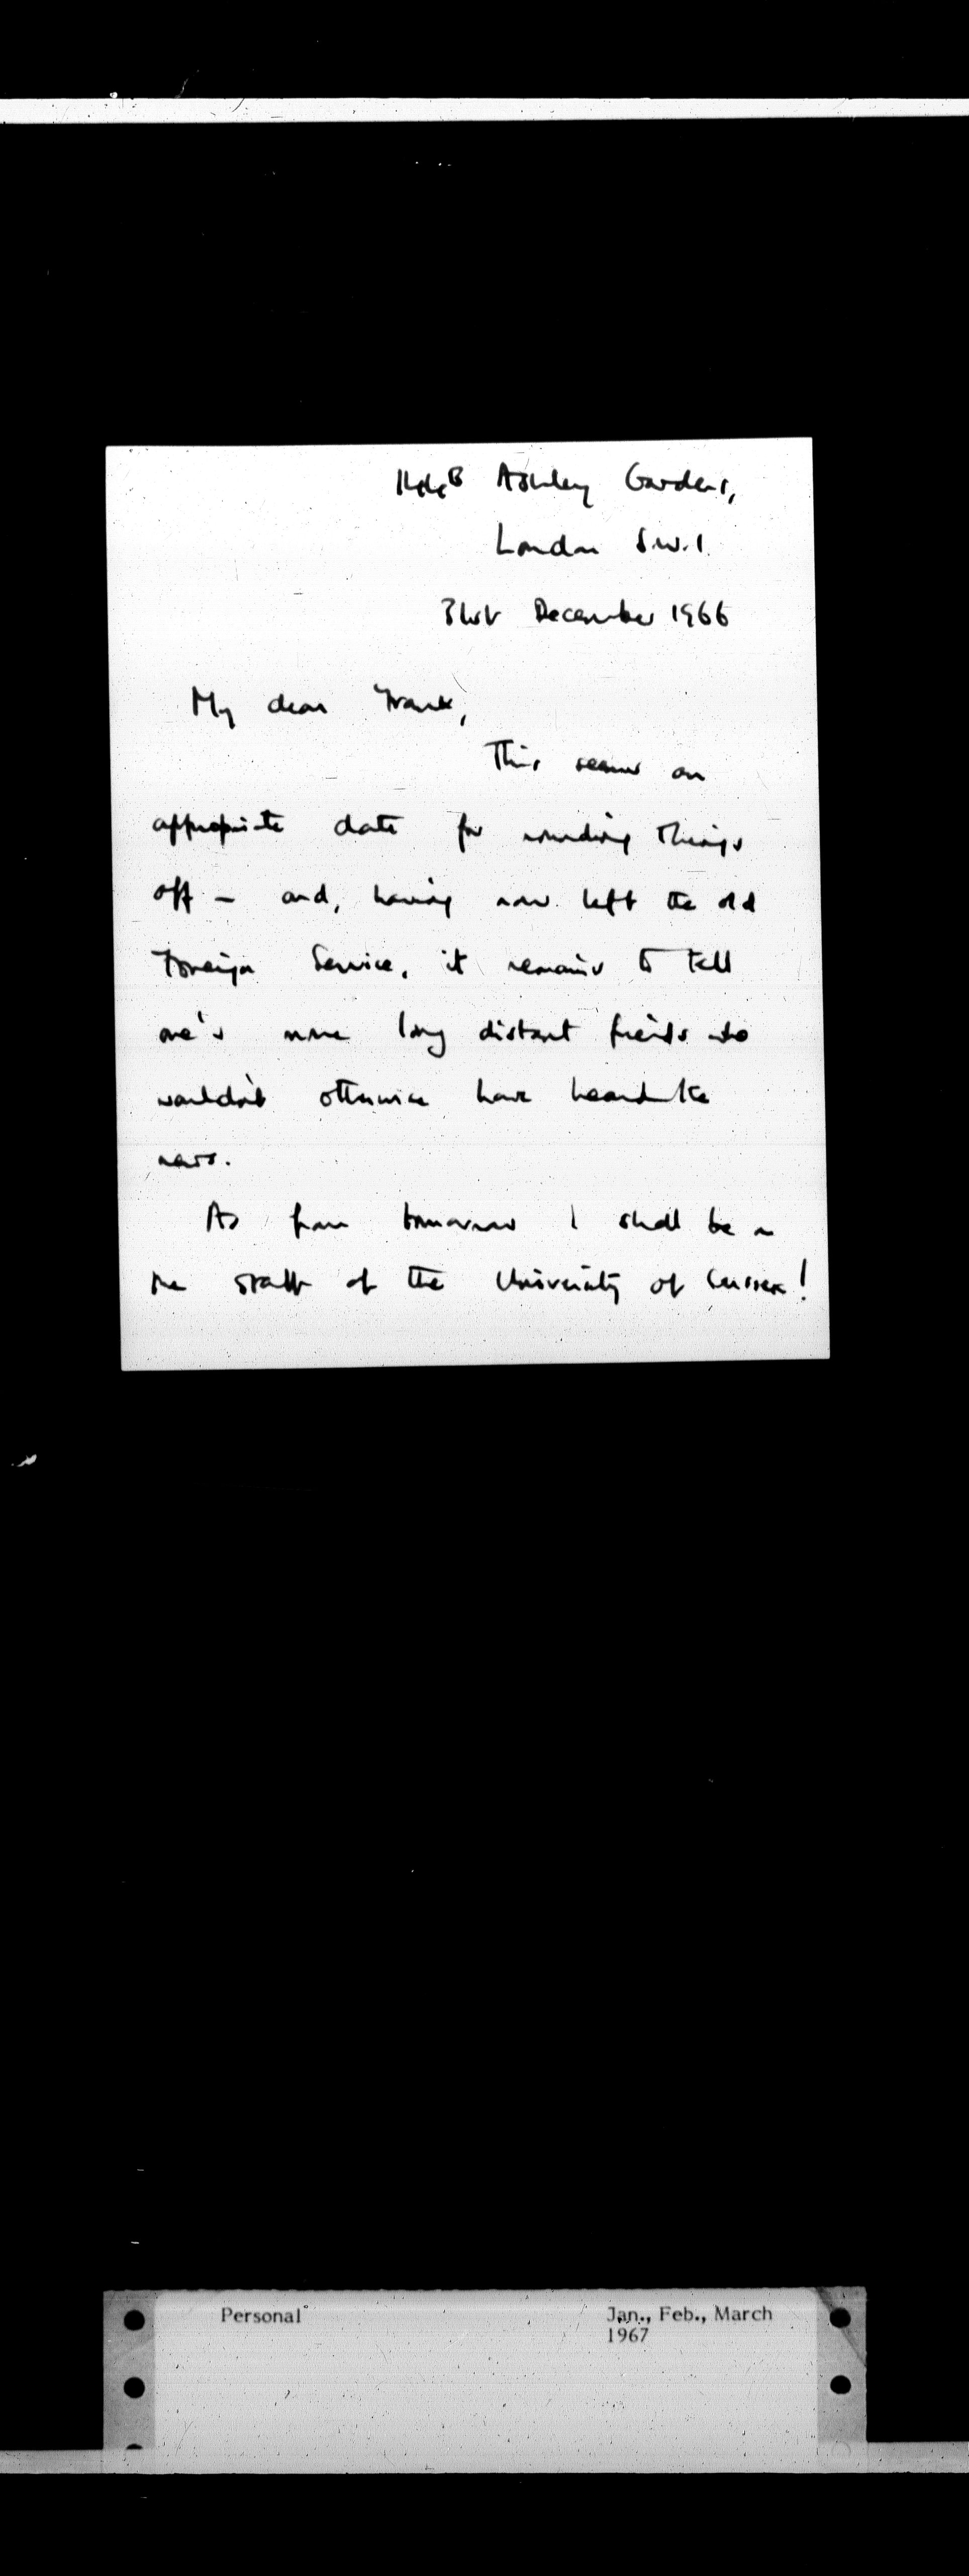 144B Ashley Gardens,
London S.W.1.
31st December 1966
My dear Frank,
This seems an
appropriate date for rounding things
off – and, having now left the old
Foreign Service, it remains to tell
one's more long distant friends who
wouldn't otherwise have heard the
news.
As from tomorrow I shall be on
the staff of the University of Sussex!
Personal
Jan., Feb., March
1967